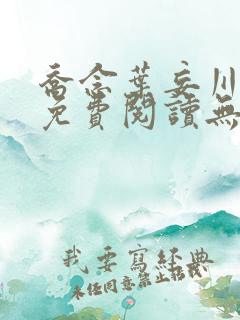 喬念葉妄川
免費閱讀無
我要寫經典
未任同意禁止转载